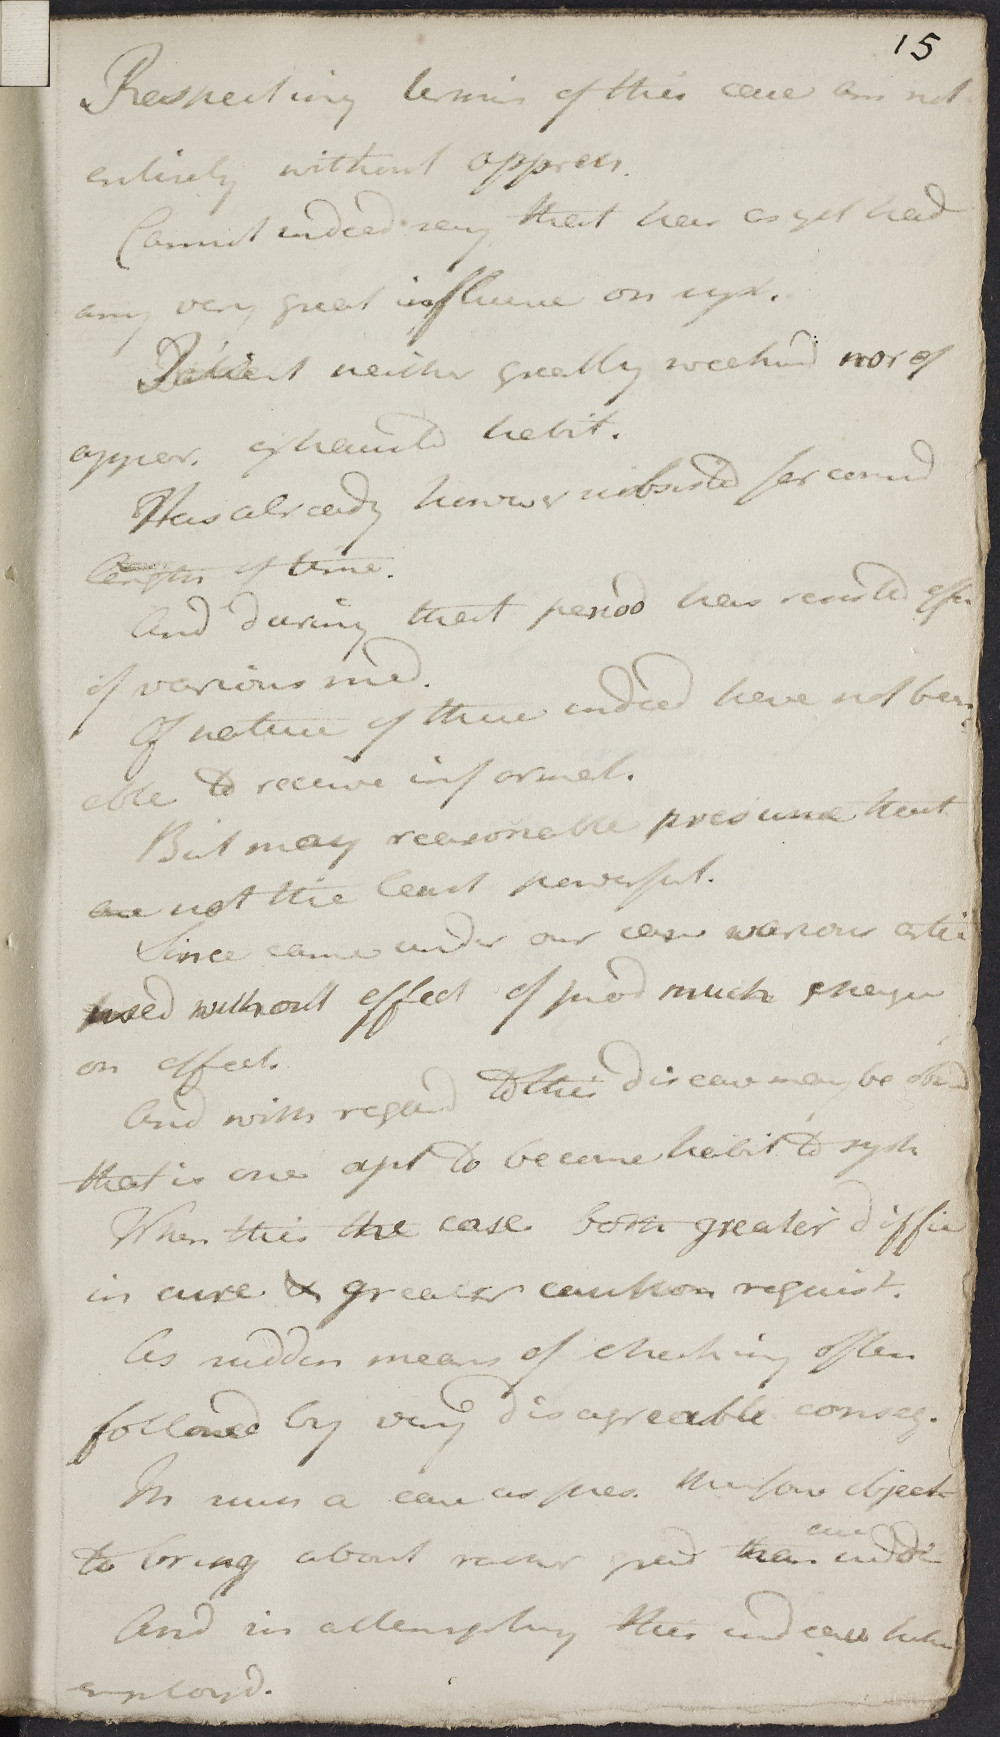 15
Respecting termin of this case am not
entirely without appreh.
Cannot indeed say that has as yet had
any very great influence on syst.
Patient neither greatly weakend nor of
appar. exhausted habit.
Has already however subsisted for consid
length of time.
And during that period has resisted effec
of various med.
Of nature of these indeed have not been
able to receive informat.
But may reasonable presume that
are not the least powerful.
Since came under our care various artic
used without effect of prod much change
on affect.
And with regard to this disease may be obsd
that is one apt to become habit to syst
When this the case both greater diffic
in cure & greater caution requisit.
As sudden means of checking often
followed by very disagreable conseq.
In such a case as pres. therefore object
to bring about rather grad than sudden
cure
And in attempting this indeed have
employd.